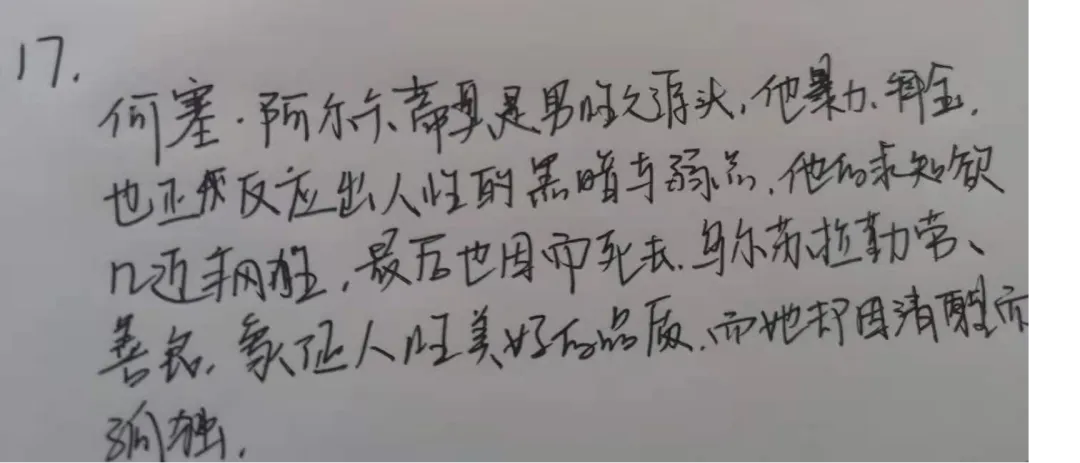 17.
何塞·阿尔卡蒂奥是男性之源头,他暴力、
也正反应出人性的黑暗与弱点,他的求知欲
几近疯狂,最后也因而死去.乌尔苏拉勤劳、
善良,象征人性美好的品质,而她却因清醒而
孤独.